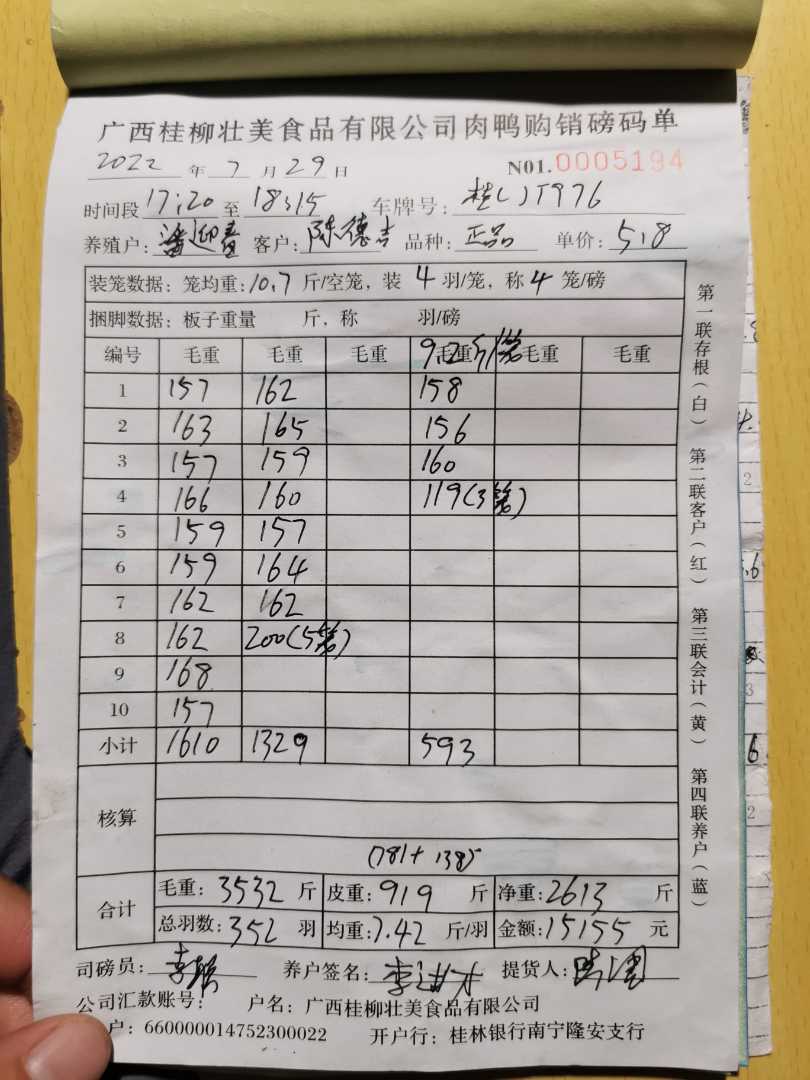 广西桂柳壮美食品有限公司肉鸭购销磅码单
2022 年 7 月 29 日 N01.0005194
时间段 17:20 至 18:15 车牌号: T976
养殖户: 客户: 陈德吉 品种: 正品 单价: 5.8
装笼数据: 笼均重: 10.7 斤/空笼, 装 4 羽/笼, 称 4 笼/磅
捆脚数据: 板子重量 斤, 称 羽/磅
编号 毛重 毛重 毛重 毛重 9.2斤/笼 毛重 毛重
1 157 162 158
2 163 165 156
3 157 159 160
4 166 160 119(3笼)
5 159 157
6 159 164
7 162 162
8 162 200(5笼)
9 168
10 157
小计 1610 1329 593
核算
(781+138)
合计 毛重: 3532 斤 皮重: 919 斤 净重: 2613 斤
总羽数: 352 羽 均重: 7.42 斤/羽 金额: 15155 元
司磅员: 养户签名: 提货人:
公司汇款账号: 户名: 广西桂柳壮美食品有限公司
户: 660000014752300022 开户行: 桂林银行南宁隆安支行
第一联存根(白)
第二联客户(红)
第三联会计(黄)
第四联养户(蓝)